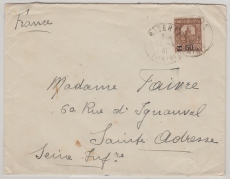 France
Madame Faivre
6a Rue d'Ignauval
Sainte Adresse
Seine Infre